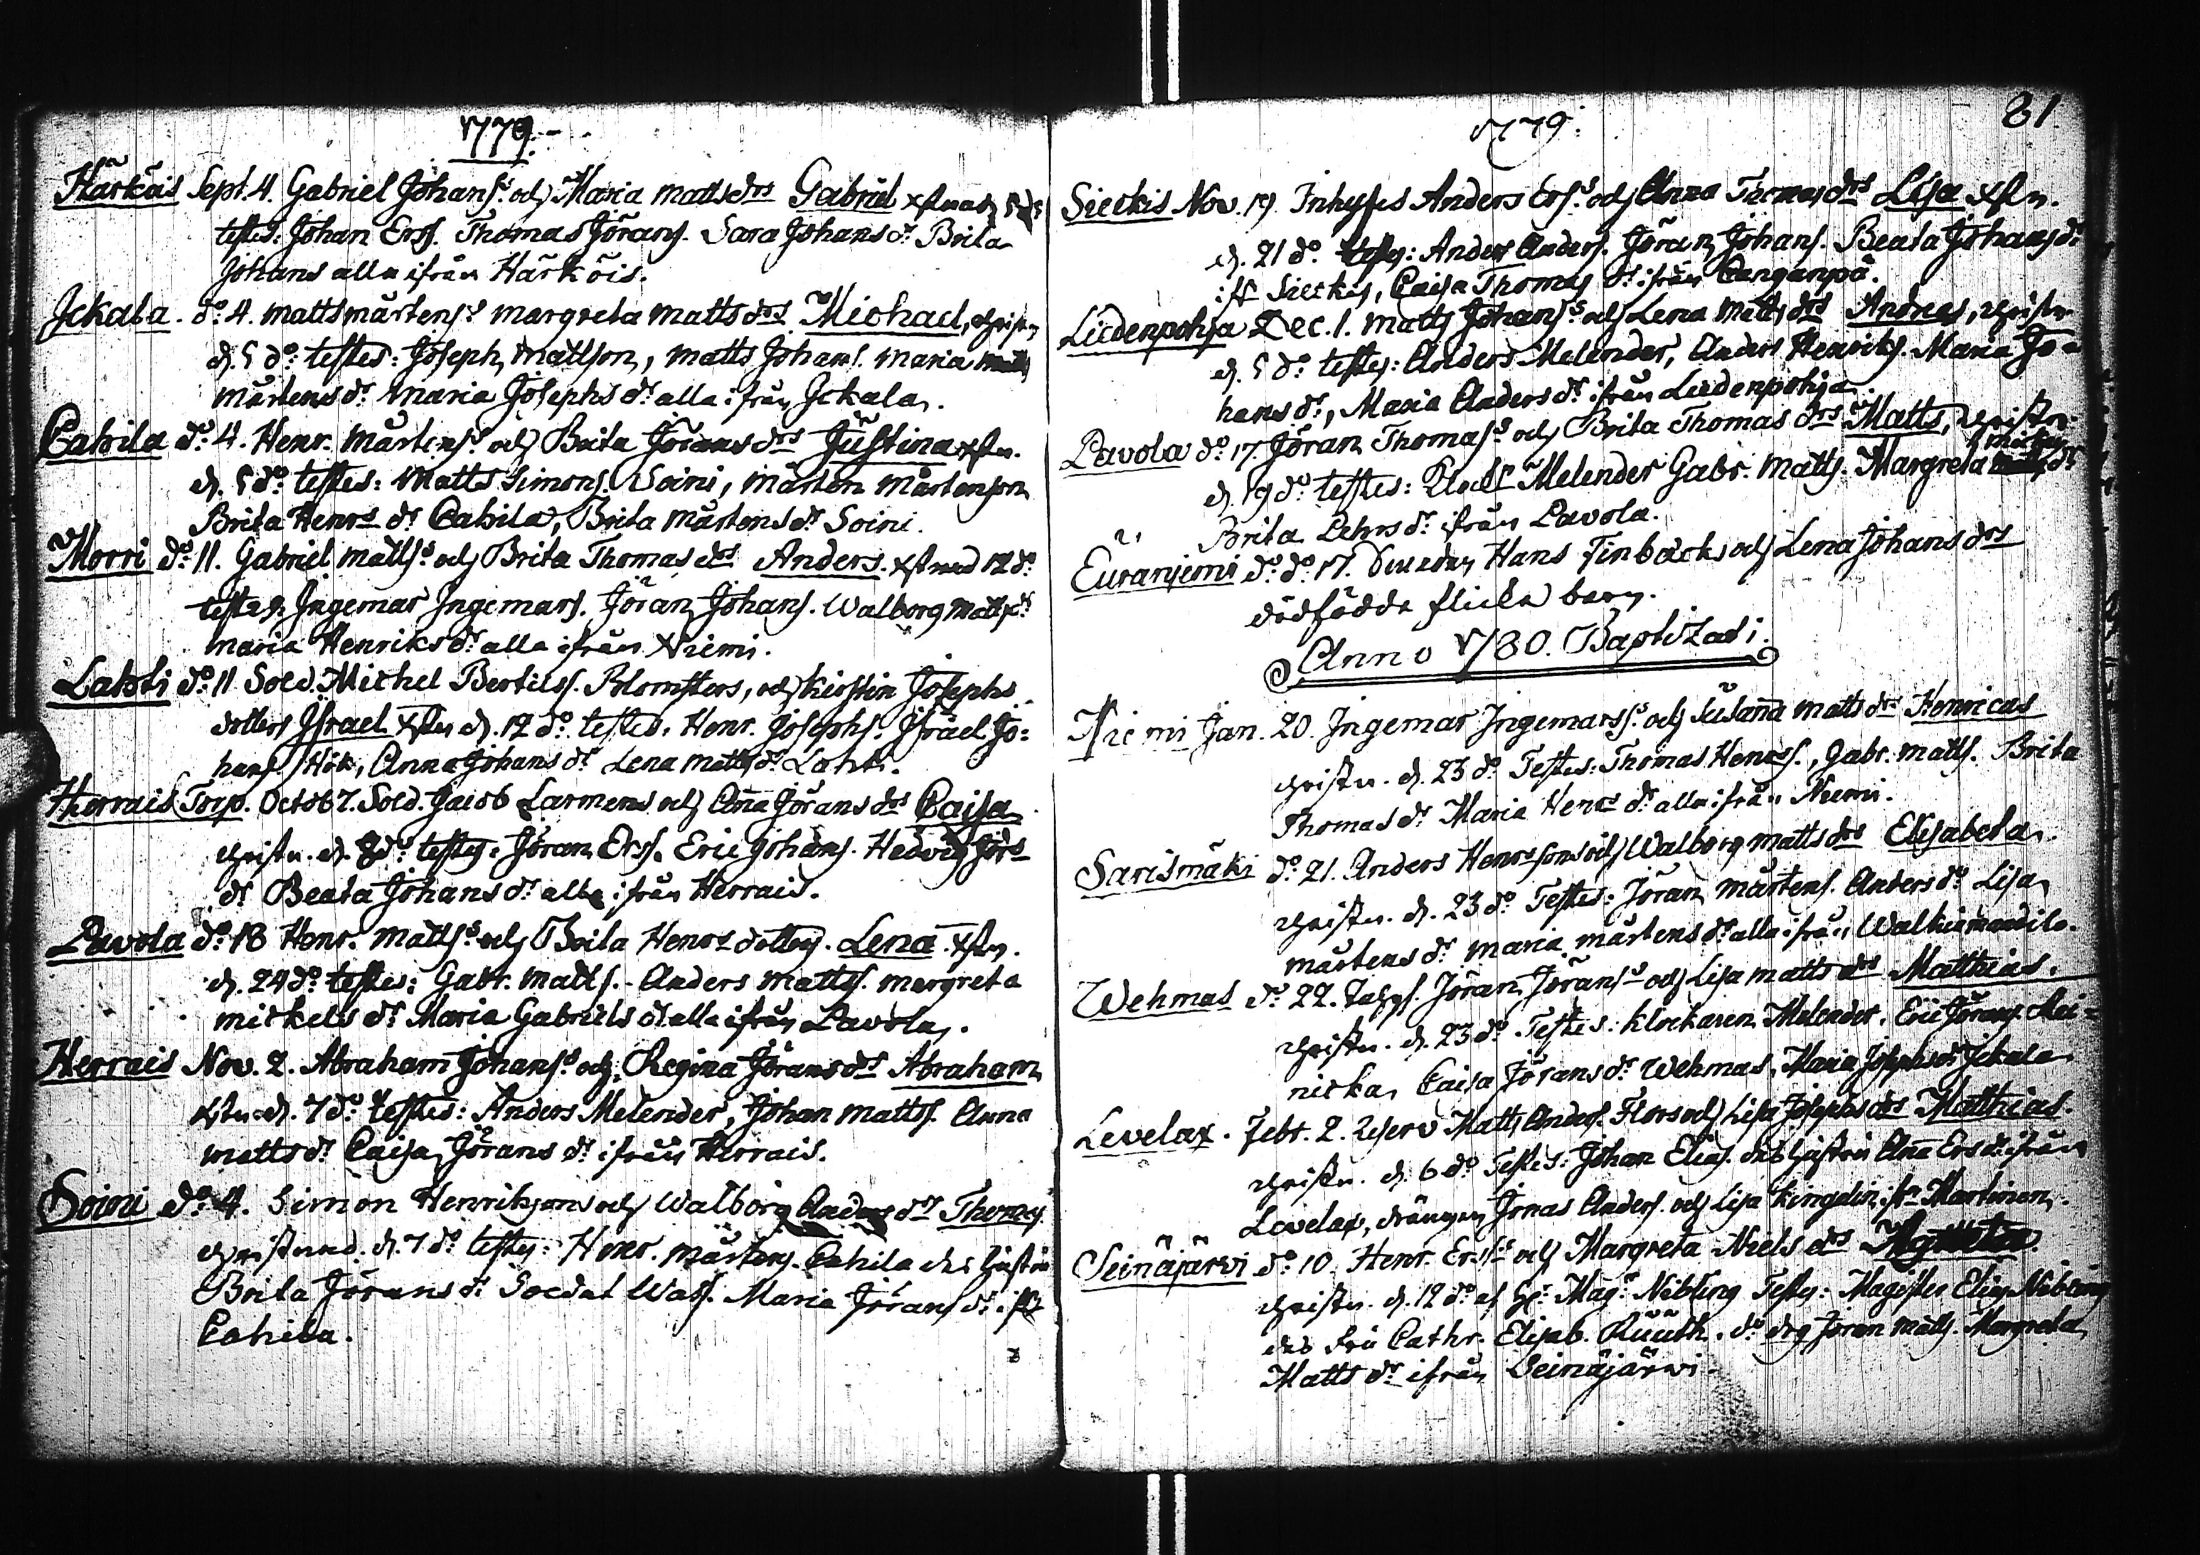 1779.
Härköis Sept. 4. Gabriel Johans.s och Maria Mattsdrs Gabriel xstnad 5 do
testes: Johan Erss. Thomas Jörans. Sara Johans dr Brita
Johans alla ifrån Härköis.
Jckala. do 4. Matts Mårtens.s Margreta Matts drs Michael, christn
d. 5 do testes: Joseph Mattson, Matts Johans. Maria
Mårtens dr Maria Josephs dr alla ifrån Jckala.
Cahila do 4. Henr. Mårtens.s och Brita Jörans drs Justina xstn.
d. 5 do testes: Matts Simons. Soini, Mårten Mårtenson
Brita Henrs dr Cahila, Brita Mårtens dr Soini.
Morri do 11. Gabriel Matts.s och Brita Thomas drs Anders. xstnad 12 do
testes Ingemar Ingemars. Jöran Johans. Walborg Matts dr
Maria Henriks dr alla ifrån Niemi.
Lahti do 11 Sold. Michel Bertilss. Blomsters, och Kirstin Josephs
dotters Jsrael xstn d. 12 do testes. Henr. Josephs. Jsrael Jo=
hans. Hök, Anna Johans dr Lena Matts dr Lahti.
Herrais Torp. Octob 7. Sold. Jacob Larmens och Aña Jörans drs Caisa
christn. d. 8 do testes. Jöran Erss. Eric Johans. Hedvig Jörs
dr Beata Johans dr alla ifrån Herrais.
Pavola do 18 Henr. Matts.s och Brita Henrs dotters. Lena. xstn.
d. 24 do testes: Gabr. Matts. Anders Mattss. Margreta
Mickels dr Maria Gabriels dr alla ifrån Pavola.
Herrais Nov. 2. Abraham Johans.s och Regina Jörans drs Abraham
xstn d. 7 do testes: Anders Melender, Johan Mattss. Anna
Matts dr Caisa Jörans dr ifrån Herrais.
Soini do 4. Simon Henriksons och Walborg drs Thomas
christnad. d. 7 do testes: Henr. Mårtens. Cahila des hustru
Brita Jörans dr Soldat Wass. Maria Jörans dr ifr
Cahila.
1779. 81.
Sieckis Nov. 19. Inhyses Anders Ers.s och Anna Thomas drs Lisa xstn.
d. 21 do testes: Anders Anders. Jöran Johans. Beata Johans dr
ifr Sieckis, Caisa Thomas dr ifrån Canganpä.
Liedenpohja Dec. 1. Matts Johans.s och Lena Matts drs Andreas, christn
d. 5 do testes: Anders Melender, Anders Henriks. Maria Jo=
hans dr, Maria Anders dr ifrån Liedenpohja.
Pavola do 17. Jöran Thomas.s och Brita Thomas drs Matts, christn.
d. 19 do testes: Melender Gabr. Matts. Margreta dr
Brita Lehrs dr ifrån Pavola.
Euranjemi do do 17. Hans Finbäcks och Lena Johans drs
dödfödda flicke barn.
Anno 1780. Baptizati.
Niemi Jan. 20. Ingemar Ingemarss.s och Susaña Matts drs Henricus
christn. d. 23 do Testes: Thomas Henrss., Gabr. Matts. Brita
Thomas dr Maria Henrs dr alla ifrån Niemi.
Sarismäki do 21. Anders Henrs sons och Walborg Matts drs Elisabeta
christn. d. 23 do Testes: Jöran Mårtens. Anders do Lisa
Mårtens dr Maria Mårtens dr alla ifrån
Wehmas do 22. Jöran Jörans.s och Lisa Matts drs Matthias.
christn. d. 23 do Testes. Klockaren Melender. Eric Jörans. Mei=
nicka, Caisa Jörans dr Wehmas, Maria Josephs dr Jckala
Levelax. Febr. 2. Reserv Matts Anders. Flors och Lisa Josephs drs Matthias.
christn. d. 6 do Testes: Johan Elias. des hustru Aña Ers dr ifrån
Levelax, drängen Jonas Anders. och Lisa Kingelin. fr Martinen
Seinäjärvi do 10. Henr. Ers.s och Margreta Niels drs
christn. d. 12 do af Hr Mag. Nibling Testes: Magister Elias Nibling
des fru Cathr. Elisab. Ruuth. do drg Jöran Matts. Margreta
Matts dr ifrån Seinäjärvi.